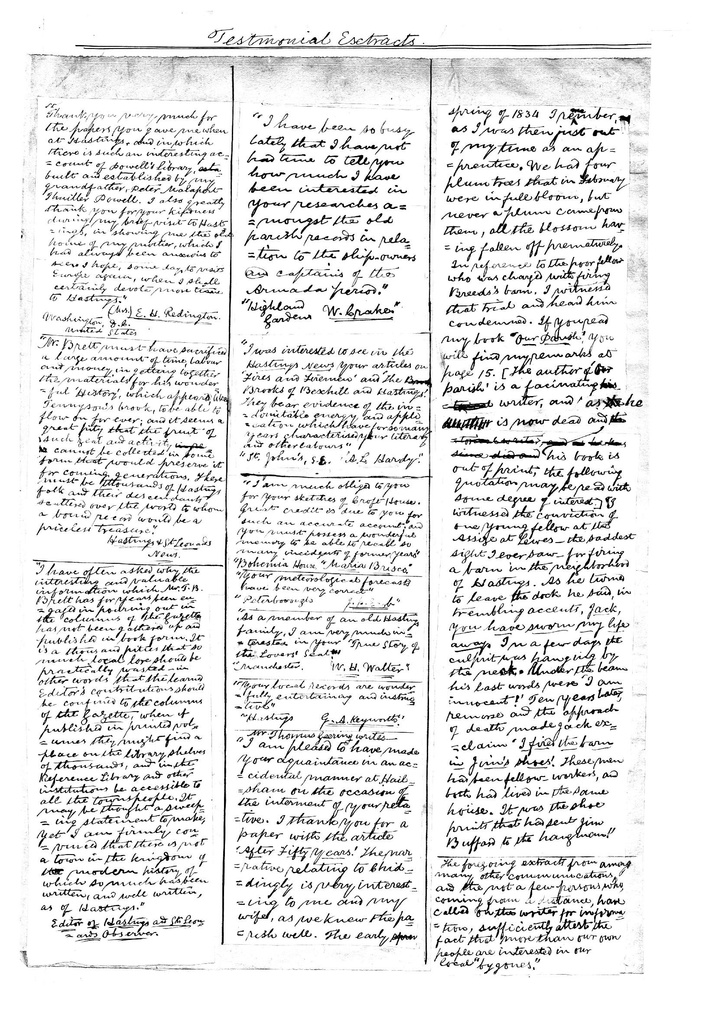 Testmonial Esctracts.
"Thank you very much for
the papers you gave me when
at Hastings, and in which
there is such an interesting ac-
=count of Powell's library,
built and established by my
grandfather, Peter Malapert
Thuillier Powell. I also greatly
thank you for your kindness
during my brief visit to Hast-
=ings, in showing me the old
home of my mother, which I
had always been anxious to
see. I hope, some day, to visit
Europe again, when I shall
certainly devote more time
to Hastings."
(Mrs) E. H. Redington.
Washington, D.C.
United States
"Mr. Brett must have sacrificed
a large amount of time, labour
and money, in getting together
the materials for his wonder
=ful 'History', which appears, like
Tennyson's brook, to be able to
flow on for ever; and it seems a
great pity that the fruit of
such zeal and activity
cannot be collected in some
form that would preserve it
for coming generations. There
must be thousands of Hastings
folk and their descendants
scattered over the world to whom
a bound record would be a
priceless treasure."
Hastings & St Leonards
News.
"I have often asked why the
interesting and valuable
information which Mr. T. B.
Brett has for years been en-
=gaged in pouring out in
the columns of the Gazette
has not been gathered up and
published in book form. It
is a thousand pities that so
much local lore should be
practically wasted – in
other words that the learned
Editor's contributions should
be confined to the columns
of the Gazette, when if
published in printed vol-
=umes they might find a
place on the library shelves
of thousands, and in the
Reference Library and other
institutions be accessible to
all the townspeople. It
may be thought a sweep
=ing statement to make,
yet I am firmly con
=vinced that there is not
a town in the kingdom of
the modern history of
which so much has been
written, and well written,
as of Hastings."
Editor of Hastings and St. Leon
=ards Observer.
"I have been so busy
lately that I have not
had time to tell you
how much I have
been interested in
your researches a=
=mongst the old
parish records in rela=
=tion to the ship-owners
an captains of the
Armada period."
"Highland
Gardens W. Crake"
"I was interested to see in the
Hastings News your articles on
'Fires and Firemen' and 'The
Brooks of Bexhill and Hastings'.
They bear evidence of the in=
=domitable energy, and appli
=cation which have for so many
years characterised your literary
and other labours"
"St. John's, S.E. A. L. Hardy"
"I am much obliged to you
for your sketches of Croft House.
Great credit is due to you for
such an accurate account, and
you must possess a wonderful
memory to be able to recall so
many incidents of former years"
"Bohemia House Maria Brisco"
"Your meteorological forecasts
have been very correct"
"Peterborough
"As a member of an old Hastings
Family, I am very much in=
=terested in your 'True Story of
the Lovers' Seat'"
"Manchester. W. H. Walter"
"Your local records are wonder
=fully entertaining and instruc
=tive"
"Hastings G. A. Keyworth"
Mr Thomas Geering writes
"I am pleased to have made
your aquaintance in an ac=
=cidental manner at Hail
=sham on the occasion of
the interment of your rela
=tive. I thank you for a
paper with the article
'After Fifty Years.' The nar
=rative relating to Chid
=dingly is very interest
=ing to me and my
wife, as we knew the pa
=rish well. The early
spring of 1834 I rember,
as I was then just out
of my time as an ap=
=prentice. We had four
plum trees that in February
were in full bloom, but
never a plum came from
them, all the blossom hav
=ing fallen off prematurely.
In reference to the poor fellow
who was charged with firing
Breeds's barn. I witnessed
that trial and heard him
condemned. If you read
my book "Our Parish" you
will find my remarks at
page 15. [The author of 'Our
Parish' is a facinating
writer, and' as he
is now dead and
his book is
out of print, the following
quotation may be read with
some degree of interest.] "I
witnessed the conviction of
one young fellow at the
Assize at Lewes – the saddest
sight I ever saw – for firing
a barn in the neighborhood
of Hastings. As he turned
to leave the dock he said, in
trembling accents, Jack,
you have sworn my life
away. In a few days the
culprit was hanging by
the neck. Under the beam
his last words were 'I am
innocent!' Ten years later,
remorse and the approach
of death made Jack ex=
=claim 'I fired the barn
in Jim's shoes'. These men
had been fellow workers, and
both had lived in the same
house. It was the shoe
prints that had sent Jim
Bufford to the hangman!!
The foregoing extracts from among
many other communications,
and the not a few persons who
coming from a distance, have
called on the writer for informa
=tion, sufficiently attest the
fact that more than our own
people are interested in our
local "bygones."